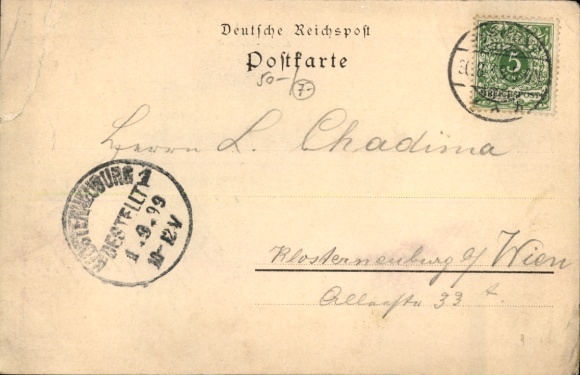 Deutsche Reichspost
Postkarte
50-/
7-
5
Herrn L. Chadima
KLOSTERNEUBURG 1
BESTELLT
1.9.99
10-12V
Klosterneuburg b/ Wien
33